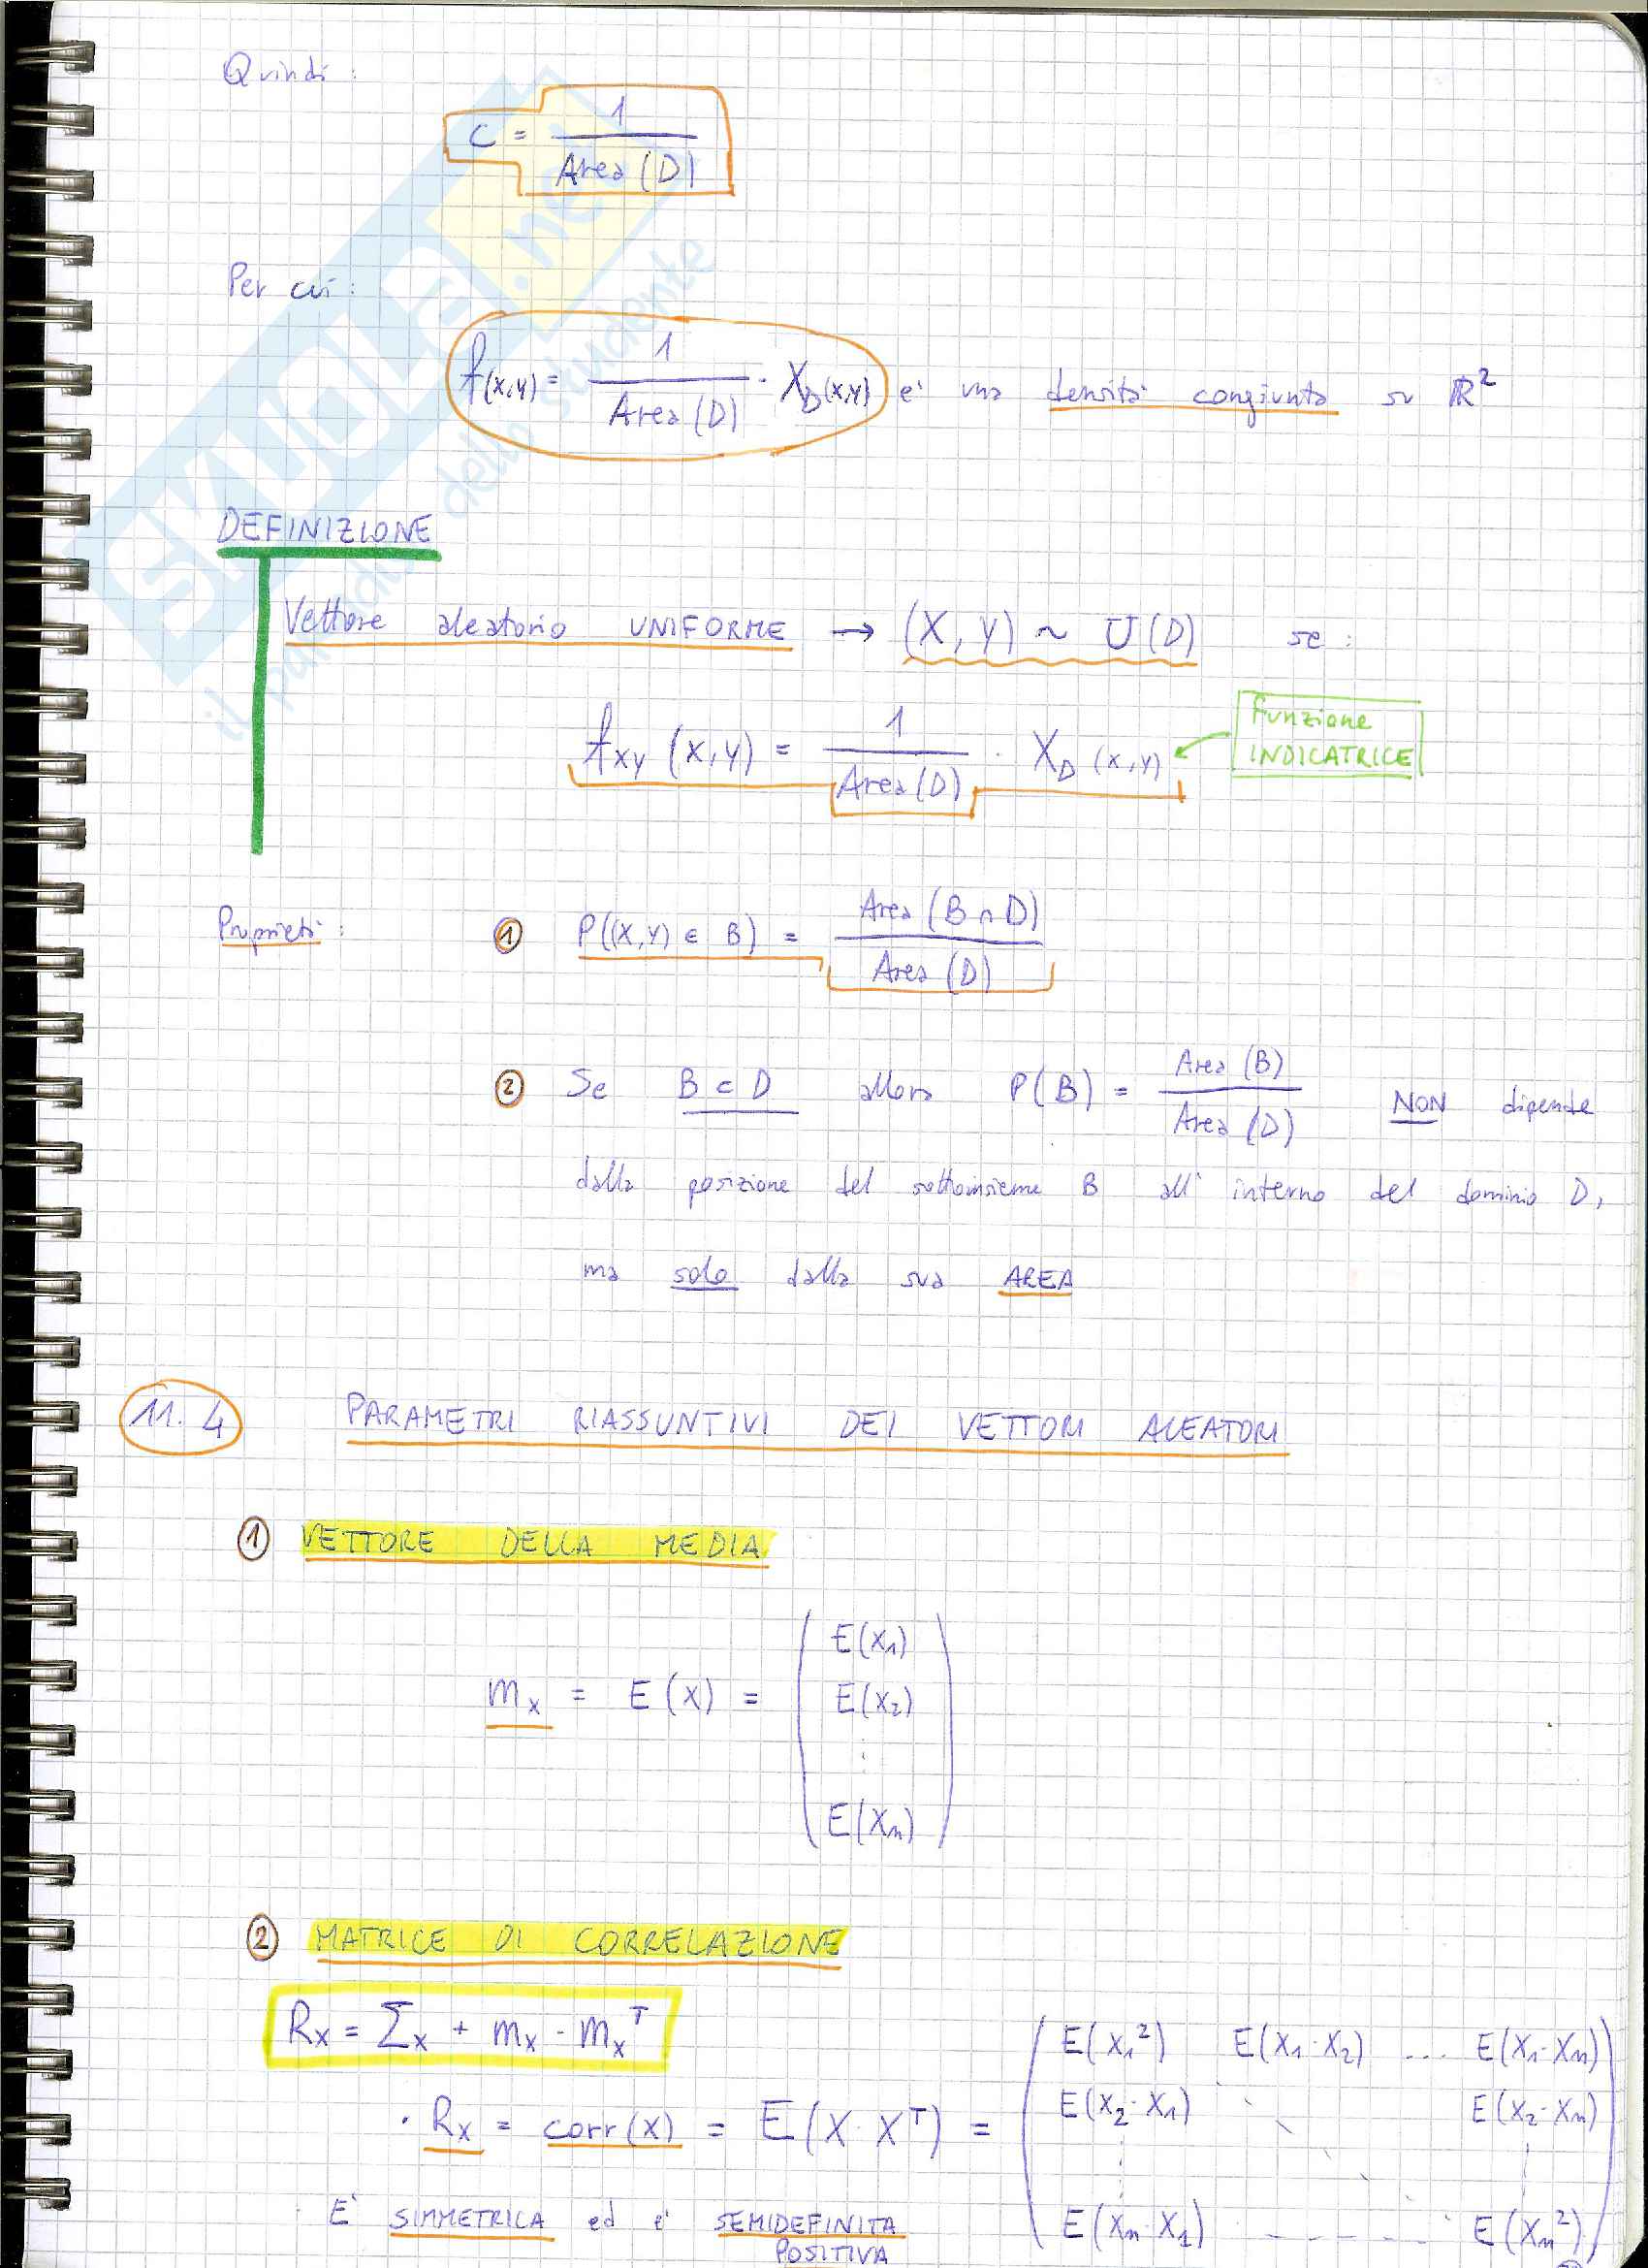 Quindi:
c = 1 / Area (D)
Per cui:
f(x,y) = 1 / Area (D) · X_D(x,y) e' una densità congiunta su ℝ²
DEFINIZIONE
Vettore aleatorio UNIFORME → (X, Y) ~ U(D) se:
f_XY (x,y) = 1 / Area (D) · X_D (x,y)
Funzione
INDICATRICE
Proprietà:
① P((X,Y) ∈ B) = Area (B ∩ D) / Area (D)
② Se B ⊂ D allora P(B) = Area (B) / Area (D) NON dipende
dalla posizione del sottoinsieme B all'interno del dominio D,
ma solo dalla sua AREA
11.4 PARAMETRI RIASSUNTIVI DEI VETTORI ALEATORI
① VETTORE DELLA MEDIA
m_x = E(X) = ( E(X₁)
E(X₂)
⋮
E(Xₙ) )
② MATRICE DI CORRELAZIONE
R_x = Σ_x + m_x · m_x^T
· R_x = corr(X) = E(X · X^T) = ( E(X₁²) E(X₁·X₂) ... E(X₁·Xₙ)
E(X₂·X₁) E(X₂·Xₙ)
E(Xₙ·X₁) E(Xₙ²) )
E' SIMMETRICA ed e' SEMIDEFINITA
POSITIVA
SKUOLA.net
il paradiso dello studente